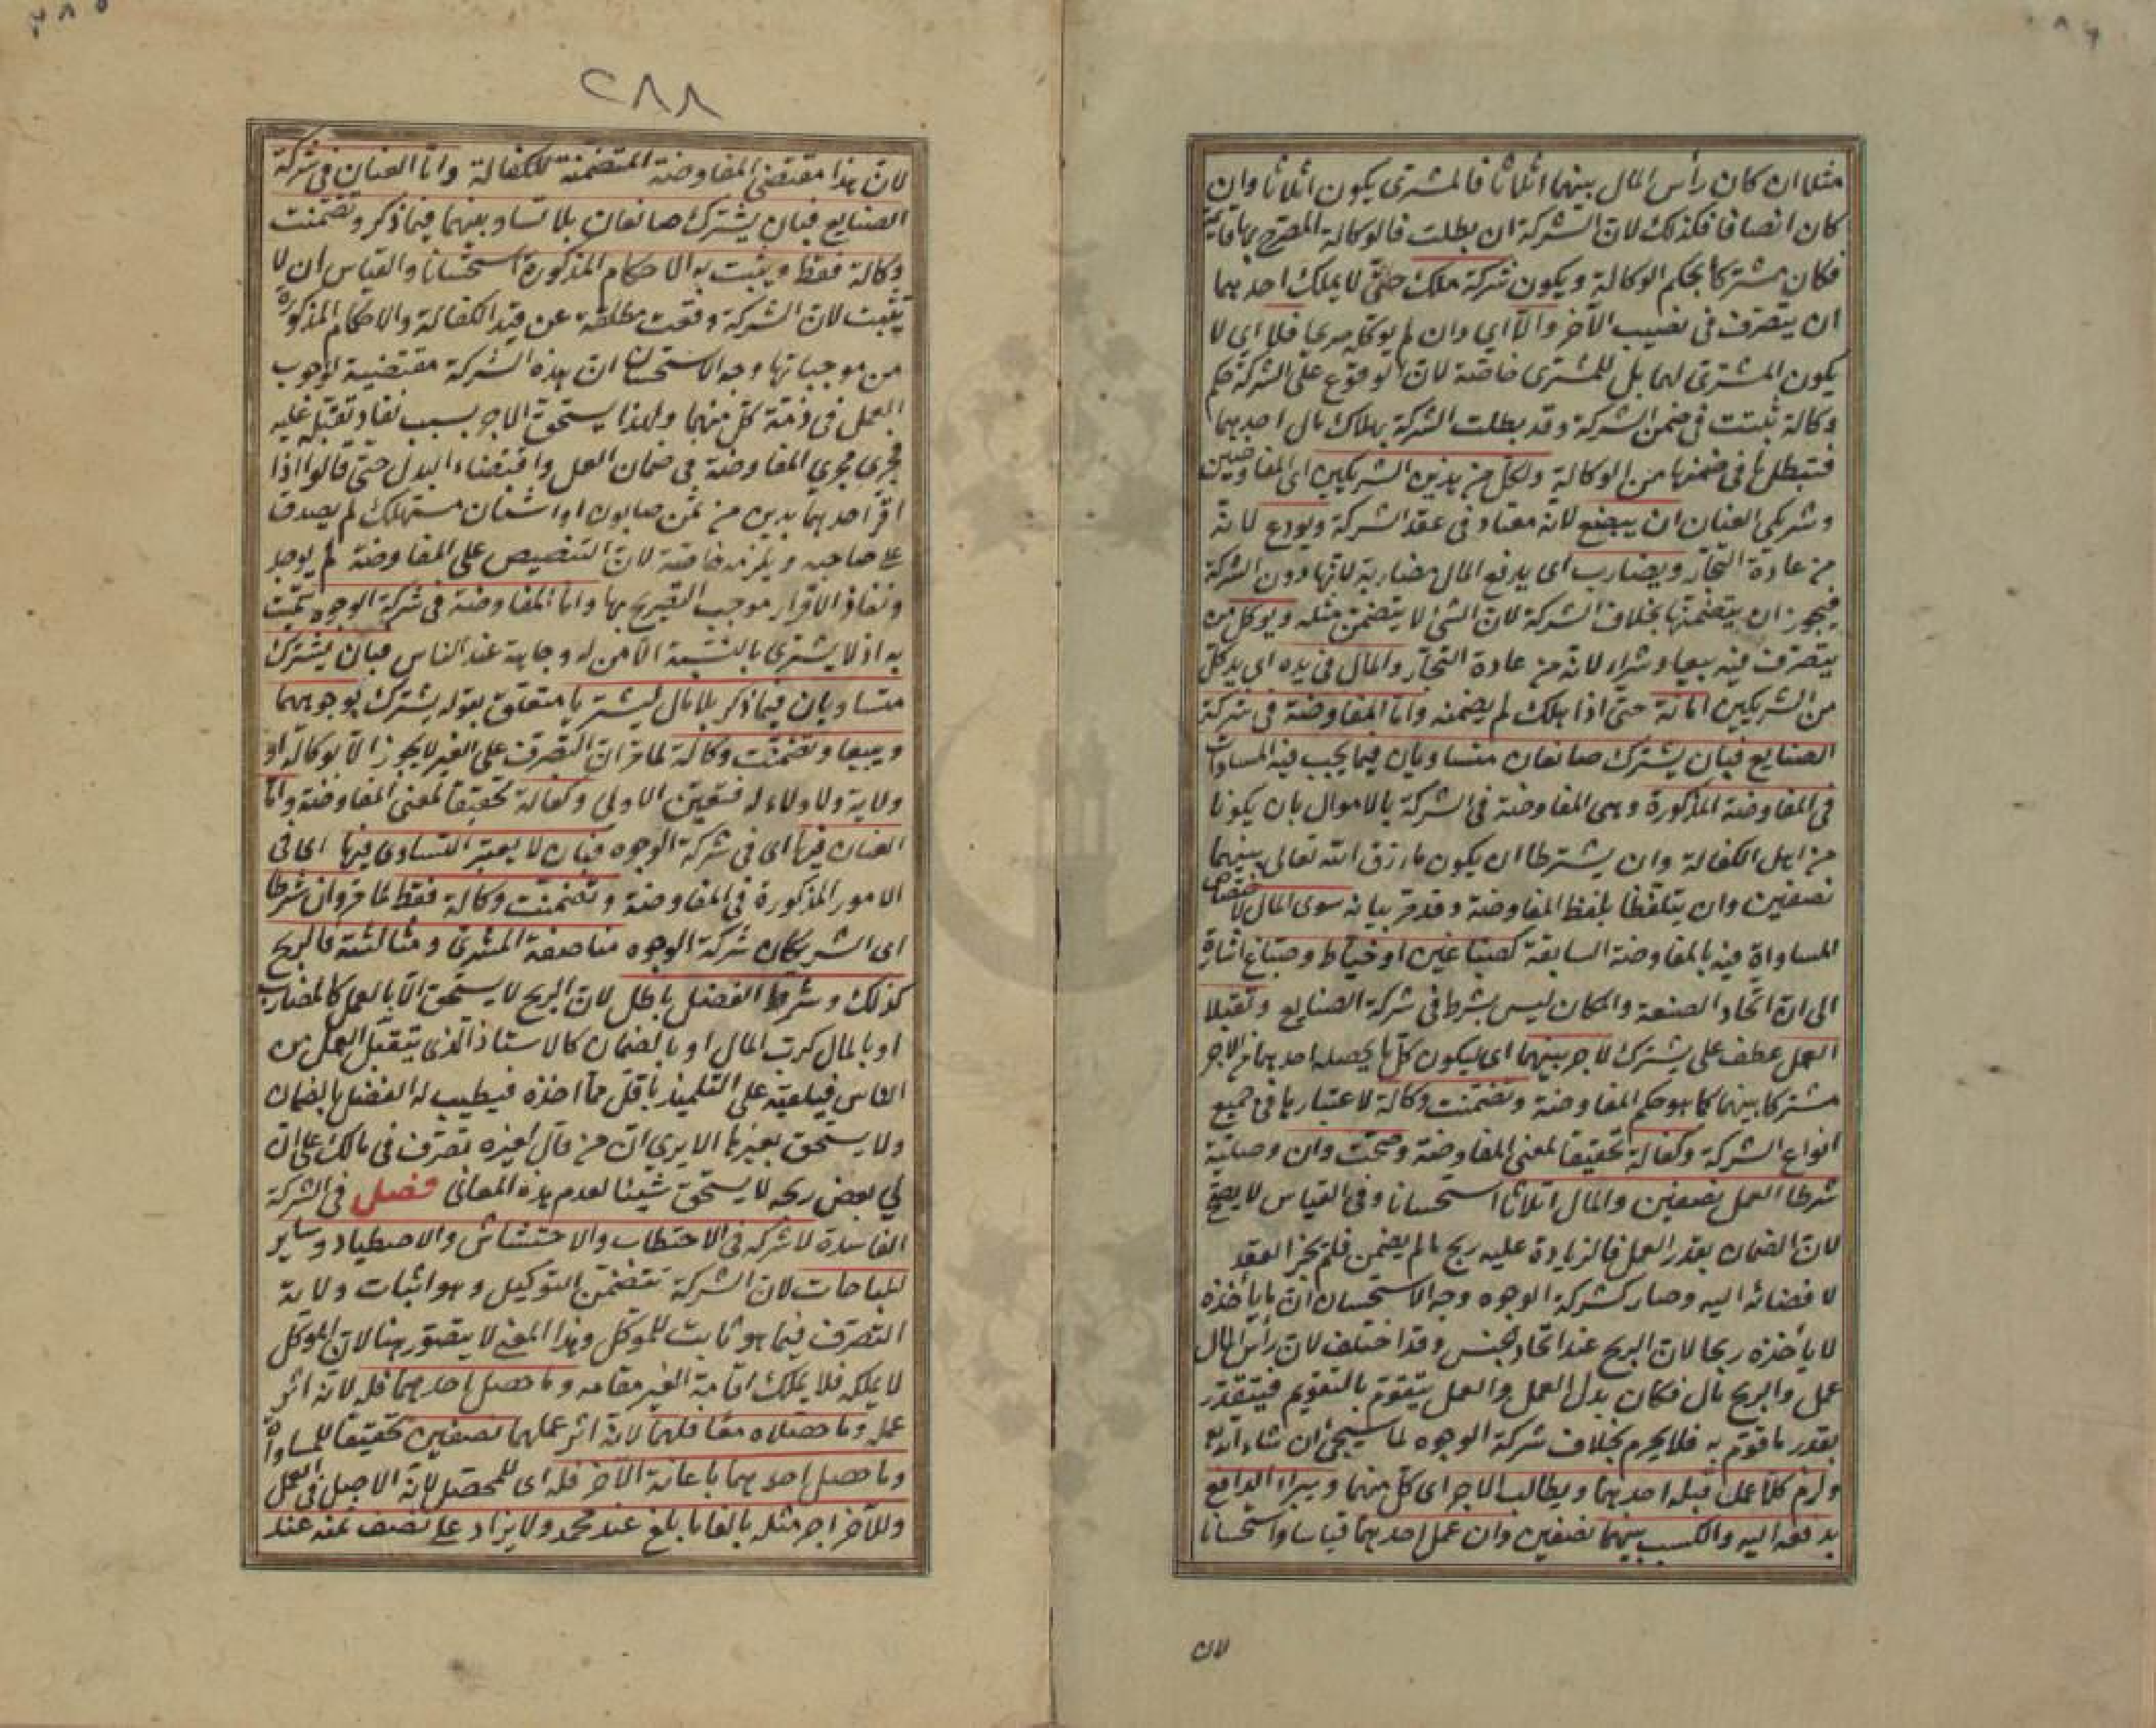 مثلا ان كان رأس المال بينهما اثلاثا فالمشترى يكون اثلاثا وان
كان انصافا فكذلك لان الشركة ان بطلت فالوكالة المصرح بها قائمة
فكان مشتركا بحكم الوكالة ويكون شركة ملك حتى لا يملك احدهما
ان يتصرف فى نصيب الآخر والا اى وان لم يوكله صريحا فلا اى لا
يكون المشترى لهما بل للمشترى خاصة لان الوقوع على الشركة حكم
وكالة ثبتت فى ضمن الشركة وقد بطلت الشركة بهلاك مال احدهما
فتبطل ما فى ضمنها من الوكالة ولكل من هذين الشريكين اى المفاوضين
وشريكى العنان ان يبضع لانه معتاد فى عقد الشركة ويودع لانه
من عادة التجار ويضارب اى يدفع المال مضاربة لانها دون الشركة
فيجوز ان يتضمنها بخلاف الشركة لان الشئ لا يتضمن مثله ويوكل من
يتصرف فيه بيعا وشراء لانه من عادة التجار والمال فى يده اى يد كل
من الشريكين امانة حتى اذا هلك لم يضمنه واما المفاوضة فى شركة
الصنايع فبان يشترك صانعان متساويان فيما يجب فيه المساواة
فى المفاوضة المذكورة وهى المفاوضة فى الشركة بالاموال بان يكونا
من اهل الكفالة وان يشترطا ان يكون ما رزق الله تعالى بينهما
نصفين وان يتلفظا بلفظ المفاوضة وقد مر بيانه سوى المال لاختصاص
المساواة فيه بالمفاوضة السابقة كصباغين او خياط وصباغ اشارة
الى ان اتحاد الصنعة والمكان ليس بشرط فى شركة الصنايع وتقبلا
العمل عطف على يشترك لاجر بينهما اى ليكون كل ما يحصله احدهما من الاجر
مشتركا بينهما كما هو حكم المفاوضة وتضمنت وكالة لاعتبارها فى جميع
انواع الشركة وكفالة تحقيقا لمعنى المفاوضة وصحت وان وصلية
شرطا العمل نصفين والمال اثلاثا استحسانا وفى القياس لا يصح
لان الضمان بقدر العمل فالزيادة عليه ربح ما لم يضمن فلم يجز العقد
لافضائه اليه وصار كشركة الوجوه وجه الاستحسان ان ما يأخذه
لا يأخذه ربحا لان الربح عند اتحاد الجنس وقد اختلف لان رأس المال
عمل والربح مال فكان بدل العمل والعمل يتقوم بالتقويم فيتقدر
بقدر ما قوم به فلا يحرم بخلاف شركة الوجوه لما سيجئ ان شاء الله تع
ولزم كلا عمل قبله احدهما ويطالب الاجر اى كل منهما ويبرأ الدافع
بدفعه اليه والكسب بينهما نصفين وان عمل احدهما قياسا واستحسانا
لان
٢٨٨
لان هذا مقتضى المفاوضة المتضمنة للكفالة واما العنان فى شركة
الصنايع فبان يشترك صانعان بلا تساو بينهما فيما ذكر وتضمنت
وكالة فقط ويثبت به الاحكام المذكورة استحسانا والقياس ان لا
يثبت لان الشركة وقعت مطلقة عن قيد الكفالة والاحكام المذكورة
من موجباتها وجه الاستحسان ان هذه الشركة مقتضية لوجوب
العمل فى ذمة كل منهما ولهذا يستحق الاجر بسبب نفاذ تقبله عليه
فجرى مجرى المفاوضة فى ضمان العمل واقتضاء البدل حتى قالوا اذا
اقر احدهما بدين من ثمن صابون او اشنان مستهلك لم يصدق
على صاحبه ويلزمه خاصة لان التنصيص على المفاوضة لم يوجد
ونفاذ الاقرار موجب التصريح بها واما المفاوضة فى شركة الوجوه سميت
به اذ لا يشترى بالنسبة الا من له وجاهة عند الناس فبان يشترك
متساويان فيما ذكر بلا مال ليشتريا متعلق بقوله يشترك بوجوههما
ويبيعا وتضمنت وكالة لما مر ان التصرف على الغير لا يجوز الا بوكالة او
ولاية ولا ولاء له فتعين الاولى وكفالة تحقيقا لمعنى المفاوضة واما
العنان فيها اى فى شركة الوجوه فبان لا يعتبر التساوى فيها اى فى
الامور المذكورة فى المفاوضة وتضمنت وكالة فقط لما مر وان شرطا
اى الشريكان شركة الوجوه مناصفة المشترى ومثالثته فالربح
كذلك وشرط الفضل باطل لان الربح لا يستحق الا بالعمل كالمضارب
او بالمال كرب المال او بالضمان كالاستاذ الذى يتقبل العمل من
الناس فيلقيه على التلميذ باقل مما اخذه فيطيب له الفضل بالضمان
ولا يستحق بغيرها الا يرى ان من قال لغيره تصرف فى مالك على ان
لى بعض ربحه لا يستحق شيئا لعدم هذه المعانى فصل فى الشركة
الفاسدة لا شركة فى الاحتطاب والاحتشاش والاصطياد وسائر
المباحات لان الشركة تتضمن التوكيل وهو اثبات ولاية
التصرف فيما هو ثابت للموكل وهذا المعنى لا يتصور هنا لان الموكل
لا يملكه فلا يملك اقامة الغير مقامه وما حصل احدهما فله لانه اثر
عمله وما حصلاه معا فلهما لانه اثر عملهما نصفين تحقيقا للمساواة
وما حصل احدهما باعانة الآخر فله اى للمحصل لانه الاصل فى العمل
وللآخر اجر مثله بالغا ما بلغ عند محمد ولا يزاد على نصف ثمنه عند